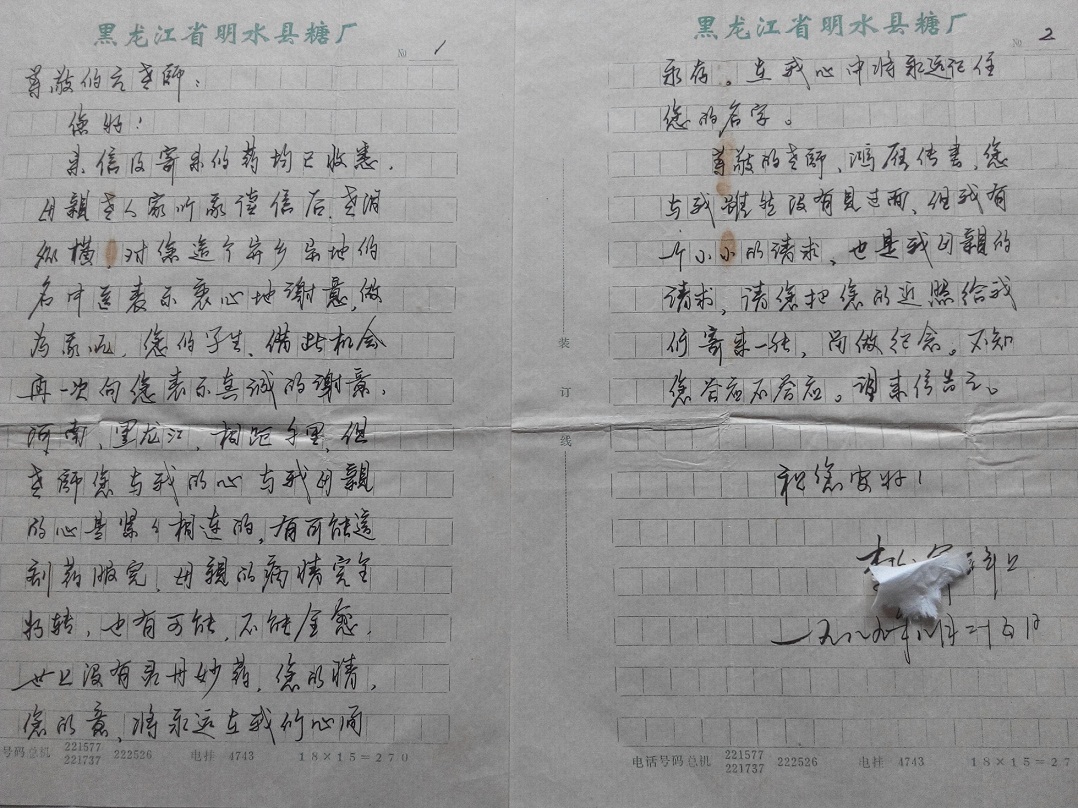 黑龙江省明水县糖厂
№ 1
尊敬的 老师:
您好!
来信及寄来的药均已收悉,
母親老人家听 信后,老泪
纵横,对您这个异乡异地的
名中医表示衷心地谢意,做
为 您的学生,借此机会
再一次向您表示真诚的谢意,
河南、黑龙江、相距千里,但
老師您与我的心与我母親
的心是紧々相连的,有可能这
剂药服完,母親的病情完全
好转,也有可能,不能全愈,
世上没有灵丹妙药,您的情,
您的意,将永远在我们心间
号码总机 221577 221737 222526 电挂 4743 18×15=270
装订线
黑龙江省明水县糖厂
№ 2
永存。在我心中将永远记住
您的名字。
尊敬的老師,鸿雁传書,您
与我雖然没有見过面,但我有
个小小的请求,也是我母親的
请求,请您把您的近照给我
们寄来一张,留做纪念。不知
您答应不答应。请来信告之。
祝您安好!
李
一九八九年八月二十五日
电话号码总机 221577 221737 222526 电挂 4743 18×15=27